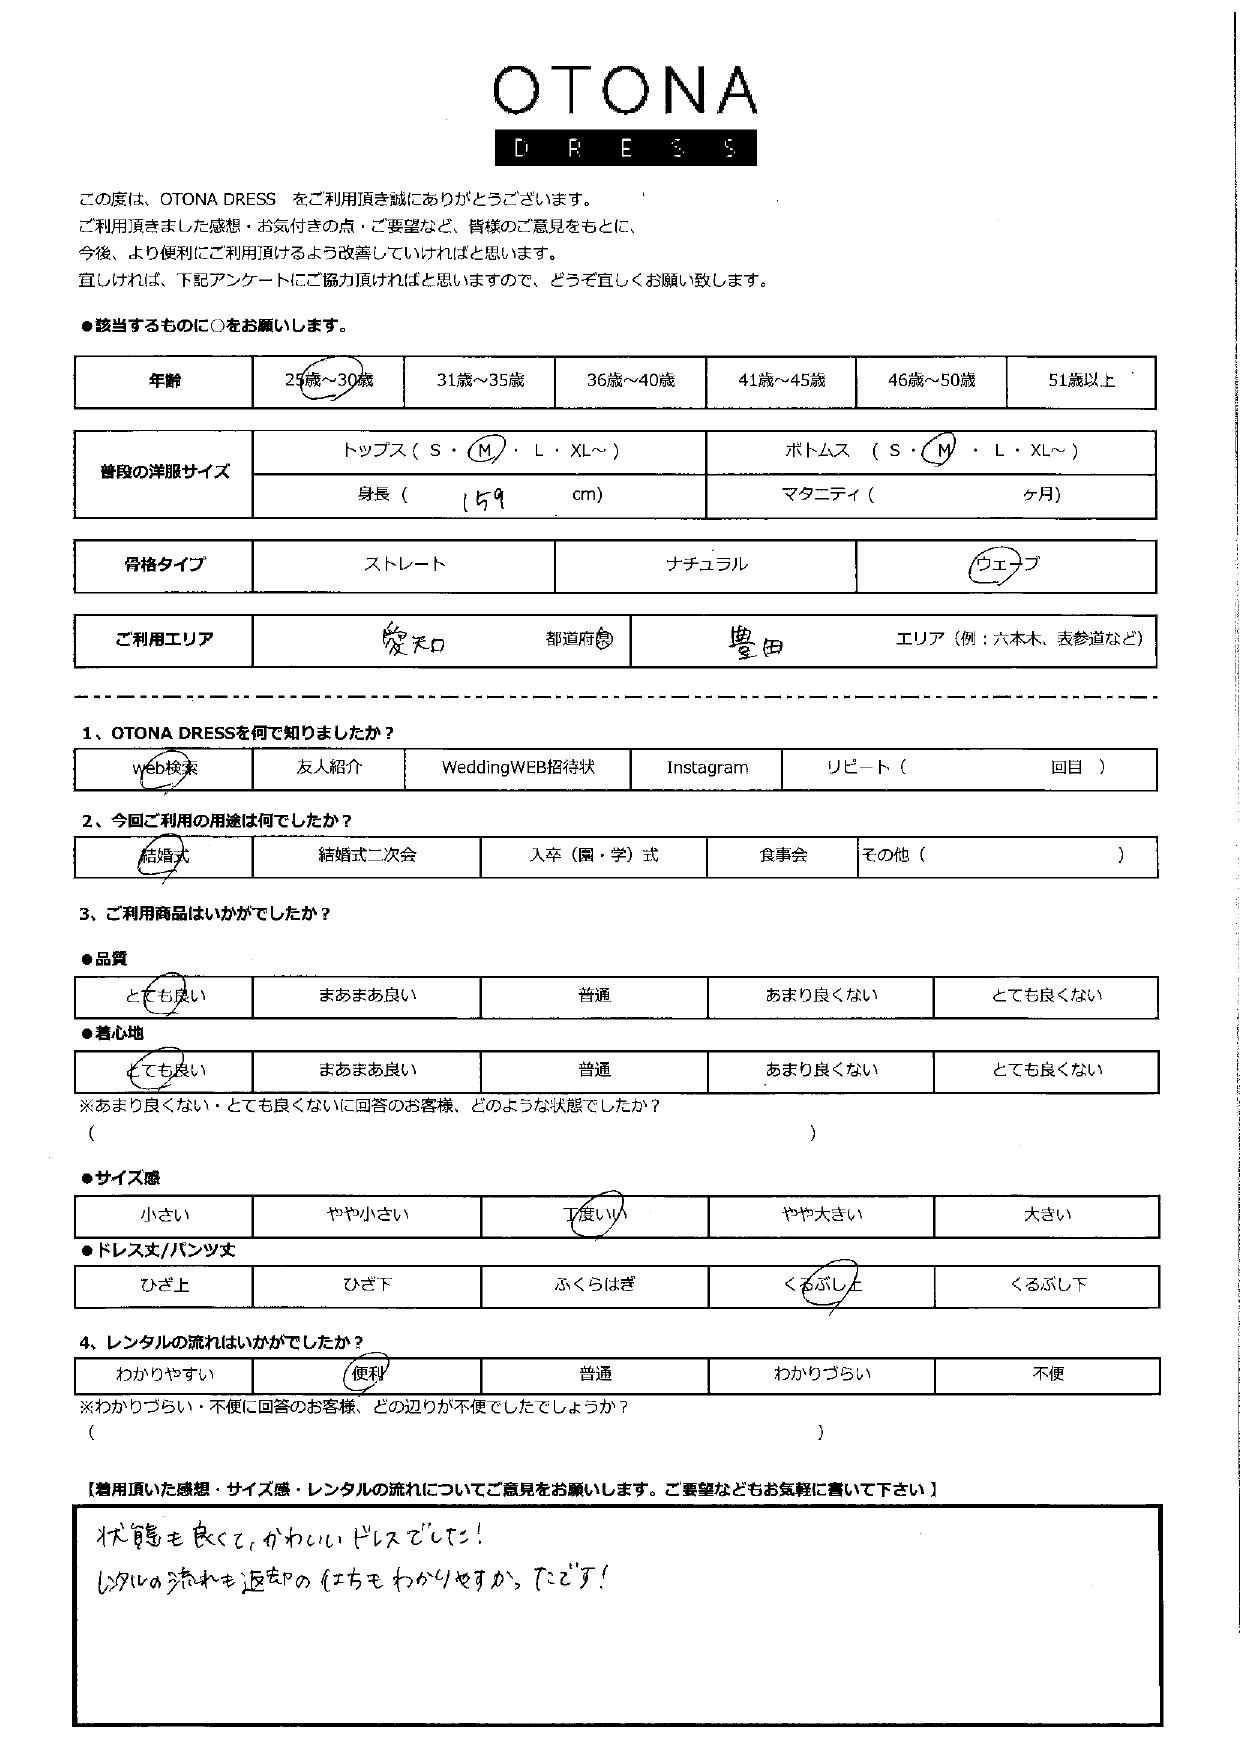 OTONA
DRESS
この度は、OTONA DRESS をご利用頂き誠にありがとうございます。
ご利用頂きました感想・お気付きの点・ご要望など、皆様のご意見をもとに、
今後、より便利にご利用頂けるよう改善していければと思います。
宜しければ、下記アンケートにご協力頂ければと思いますので、どうぞ宜しくお願い致します。
●該当するものに○をお願いします。
年齢 25歳～30歳 31歳～35歳 36歳～40歳 41歳～45歳 46歳～50歳 51歳以上
普段の洋服サイズ
トップス ( S ・ M ・ L ・ XL～ ) ボトムス ( S ・ M ・ L ・ XL～ )
身長 ( 159 cm) マタニティ ( ヶ月)
骨格タイプ ストレート ナチュラル ウェーブ
ご利用エリア 愛知 都道府県 豊田 エリア（例：六本木、表参道など）
1、OTONA DRESSを何で知りましたか？
web検索 友人紹介 WeddingWEB招待状 Instagram リピート（ 回目 ）
2、今回ご利用の用途は何でしたか？
結婚式 結婚式二次会 入卒（園・学）式 食事会 その他（ ）
3、ご利用商品はいかがでしたか？
●品質
とても良い まあまあ良い 普通 あまり良くない とても良くない
●着心地
とても良い まあまあ良い 普通 あまり良くない とても良くない
※あまり良くない・とても良くないに回答のお客様、どのような状態でしたか？
（ ）
●サイズ感
小さい やや小さい 丁度いい やや大きい 大きい
●ドレス丈/パンツ丈
ひざ上 ひざ下 ふくらはぎ くるぶし上 くるぶし下
4、レンタルの流れはいかがでしたか？
わかりやすい 便利 普通 わかりづらい 不便
※わかりづらい・不便に回答のお客様、どの辺りが不便でしたでしょうか？
（ ）
【着用頂いた感想・サイズ感・レンタルの流れについてご意見をお願いします。ご要望などもお気軽に書いて下さい】
状態も良くて、かわいいドレスでした！
レンタルの流れも返却の仕方もわかりやすかったです！